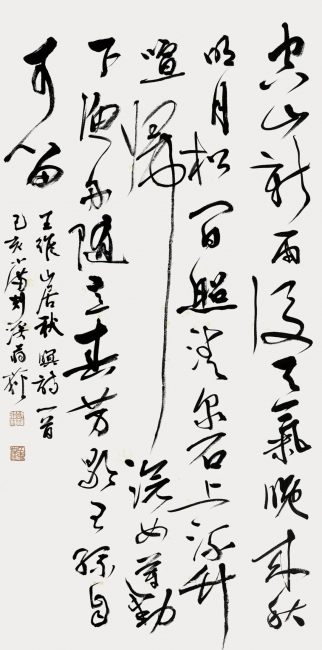 空山新雨後天氣晚來秋
明月松間照清泉石上流竹
喧歸浣女蓮動
下漁舟隨意春芳歇王孫自
可留
王維山居秋暝詩一首
己亥小滿劉